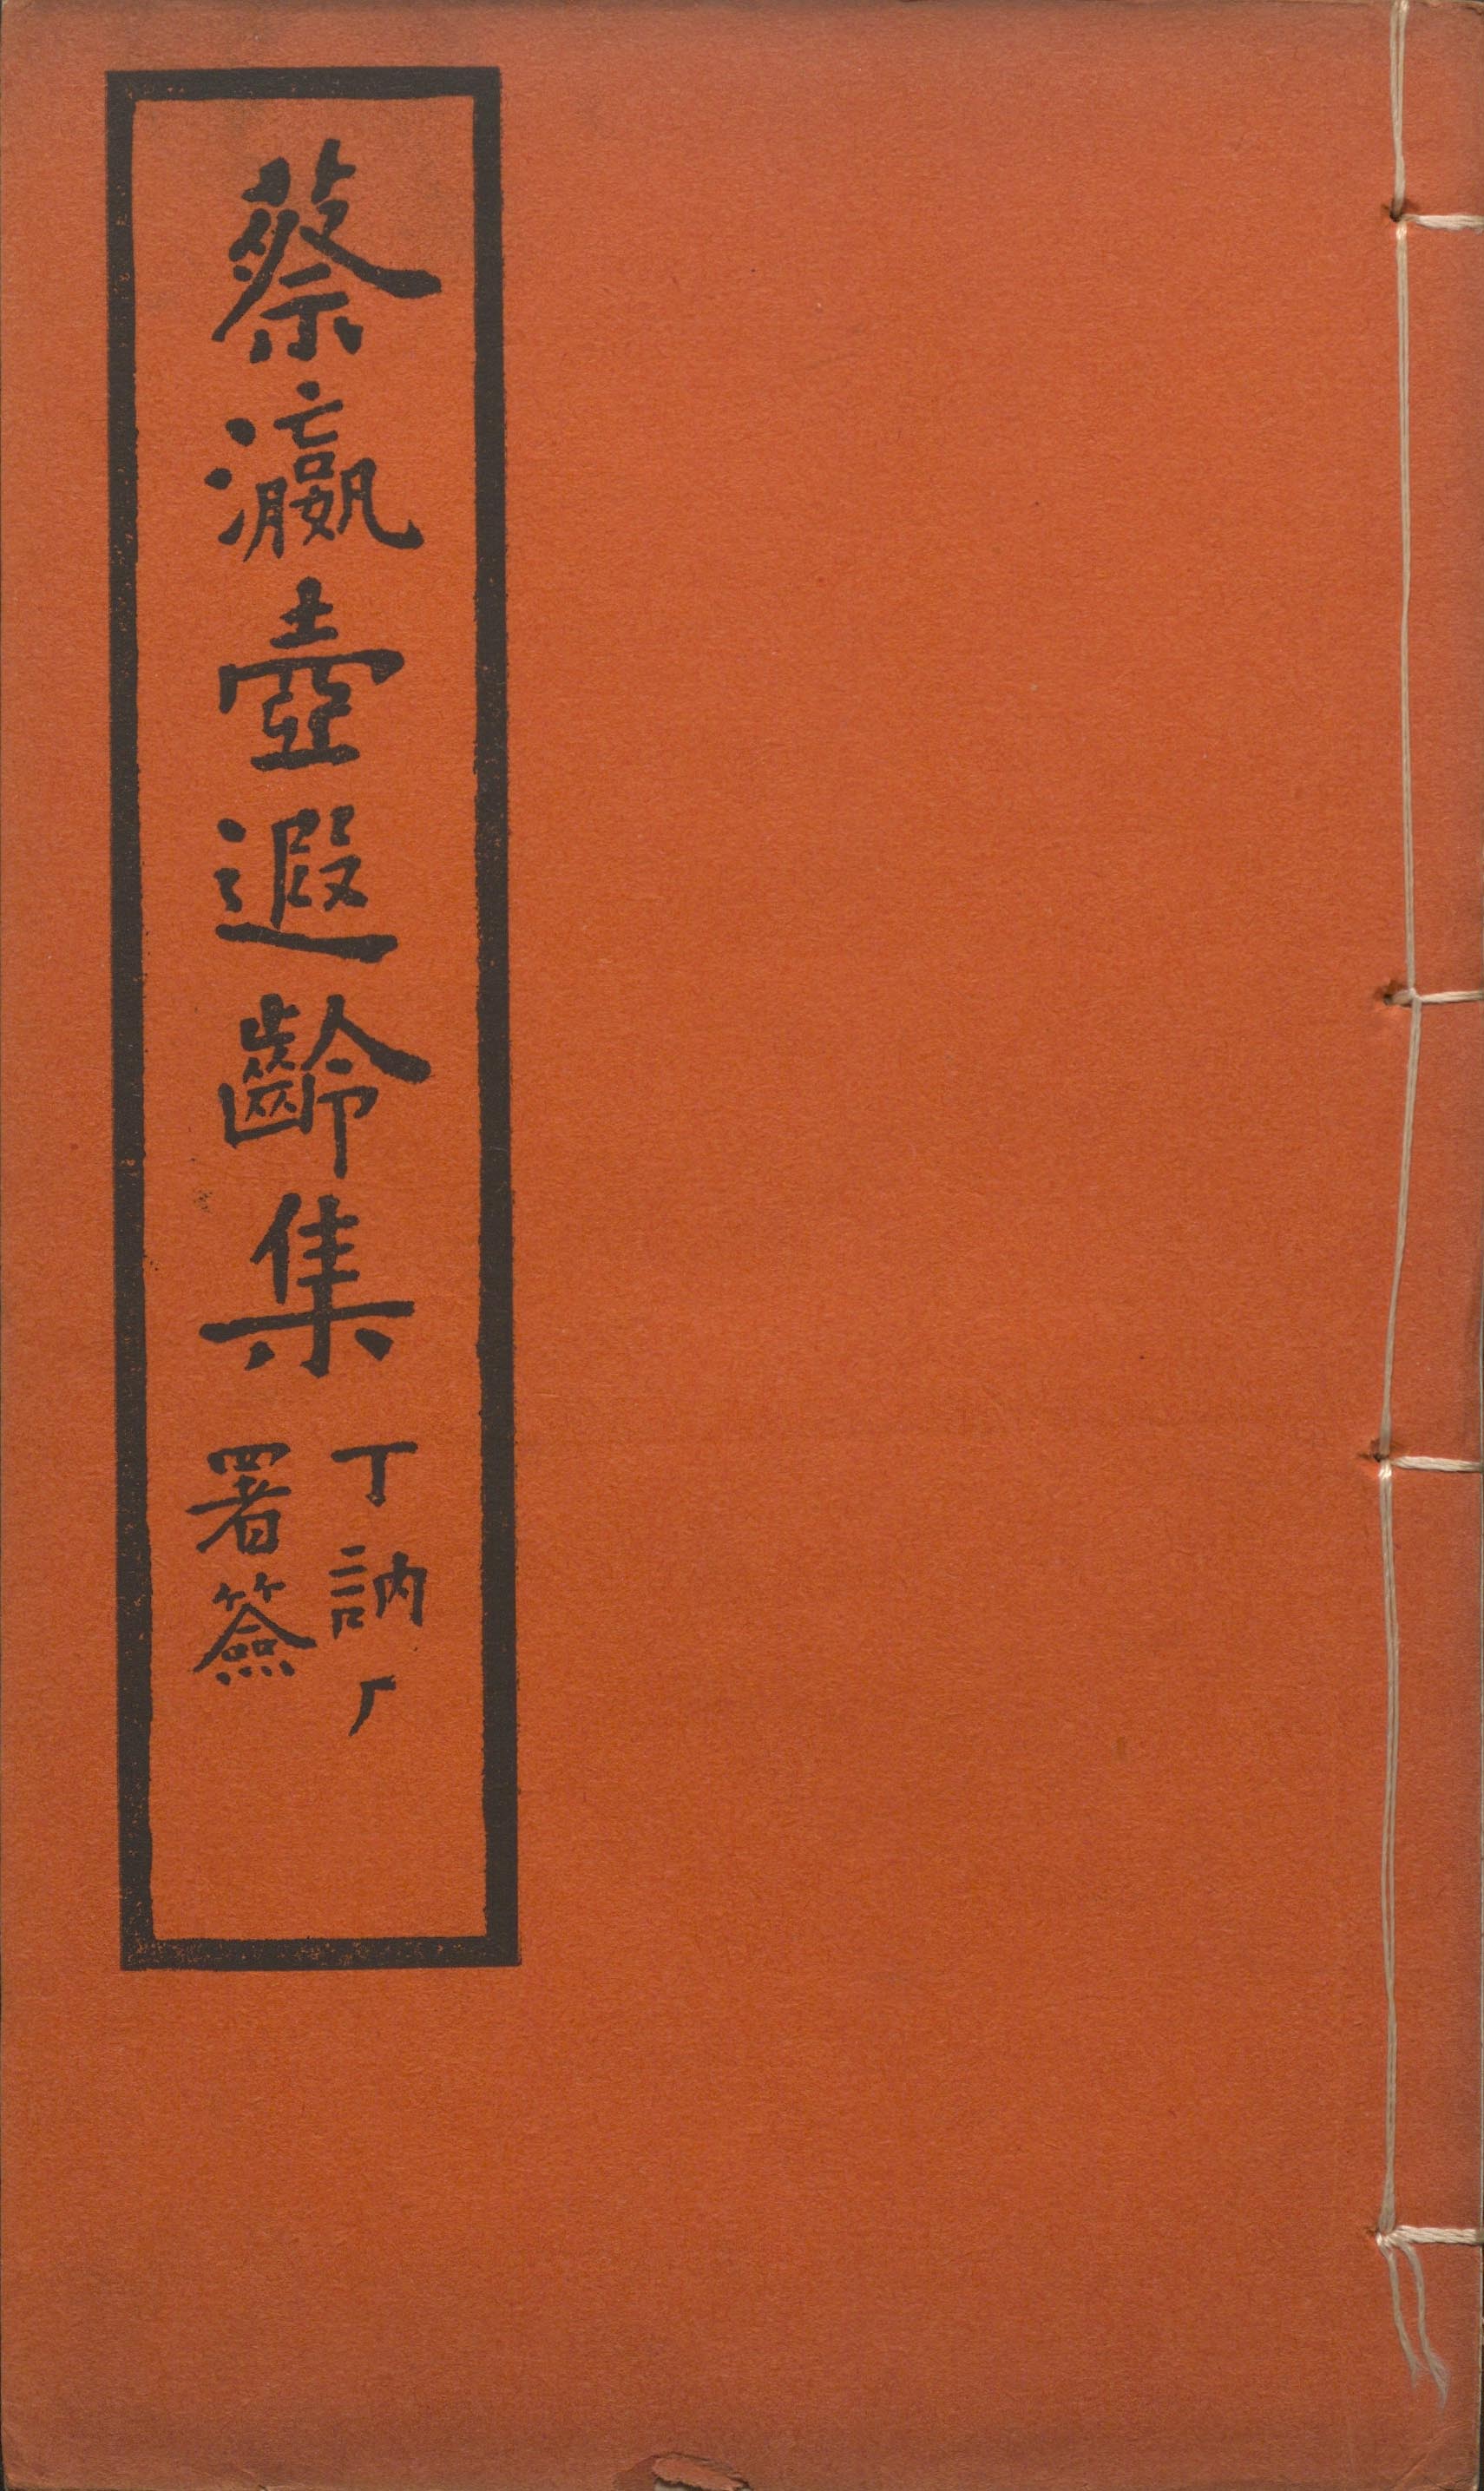 蔡瀛壺遐齡集
丁訥厂
署簽